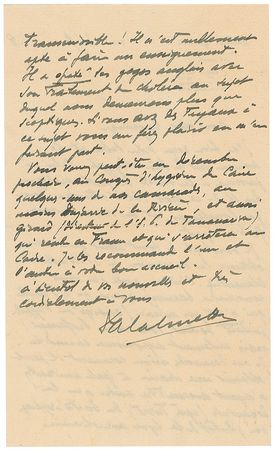 transmissible ! Il n'est nullement
apte à faire un enseignement
Il a "épaté" les gogos anglais avec
son traitement du choléra au sujet
duquel nous demeurons plus que
sceptiques. Si vous avez des tuyaux à
ce sujet vous me ferez plaisir en m'en
faisant part.
Vous verrez peut-être en Décembre
prochain, au Congrès d'hygiène du Caire
quelques-uns de nos camarades, au
moins Dujarric de la Rivière, et aussi
Girard (Directeur de l'I. P. de Tananarive)
qui rentre en France et qui s'arrêtera au
Caire. Je les recommande l'un et
l'autre à votre bon accueil.
à bientôt de vos nouvelles et très
cordialement à vous